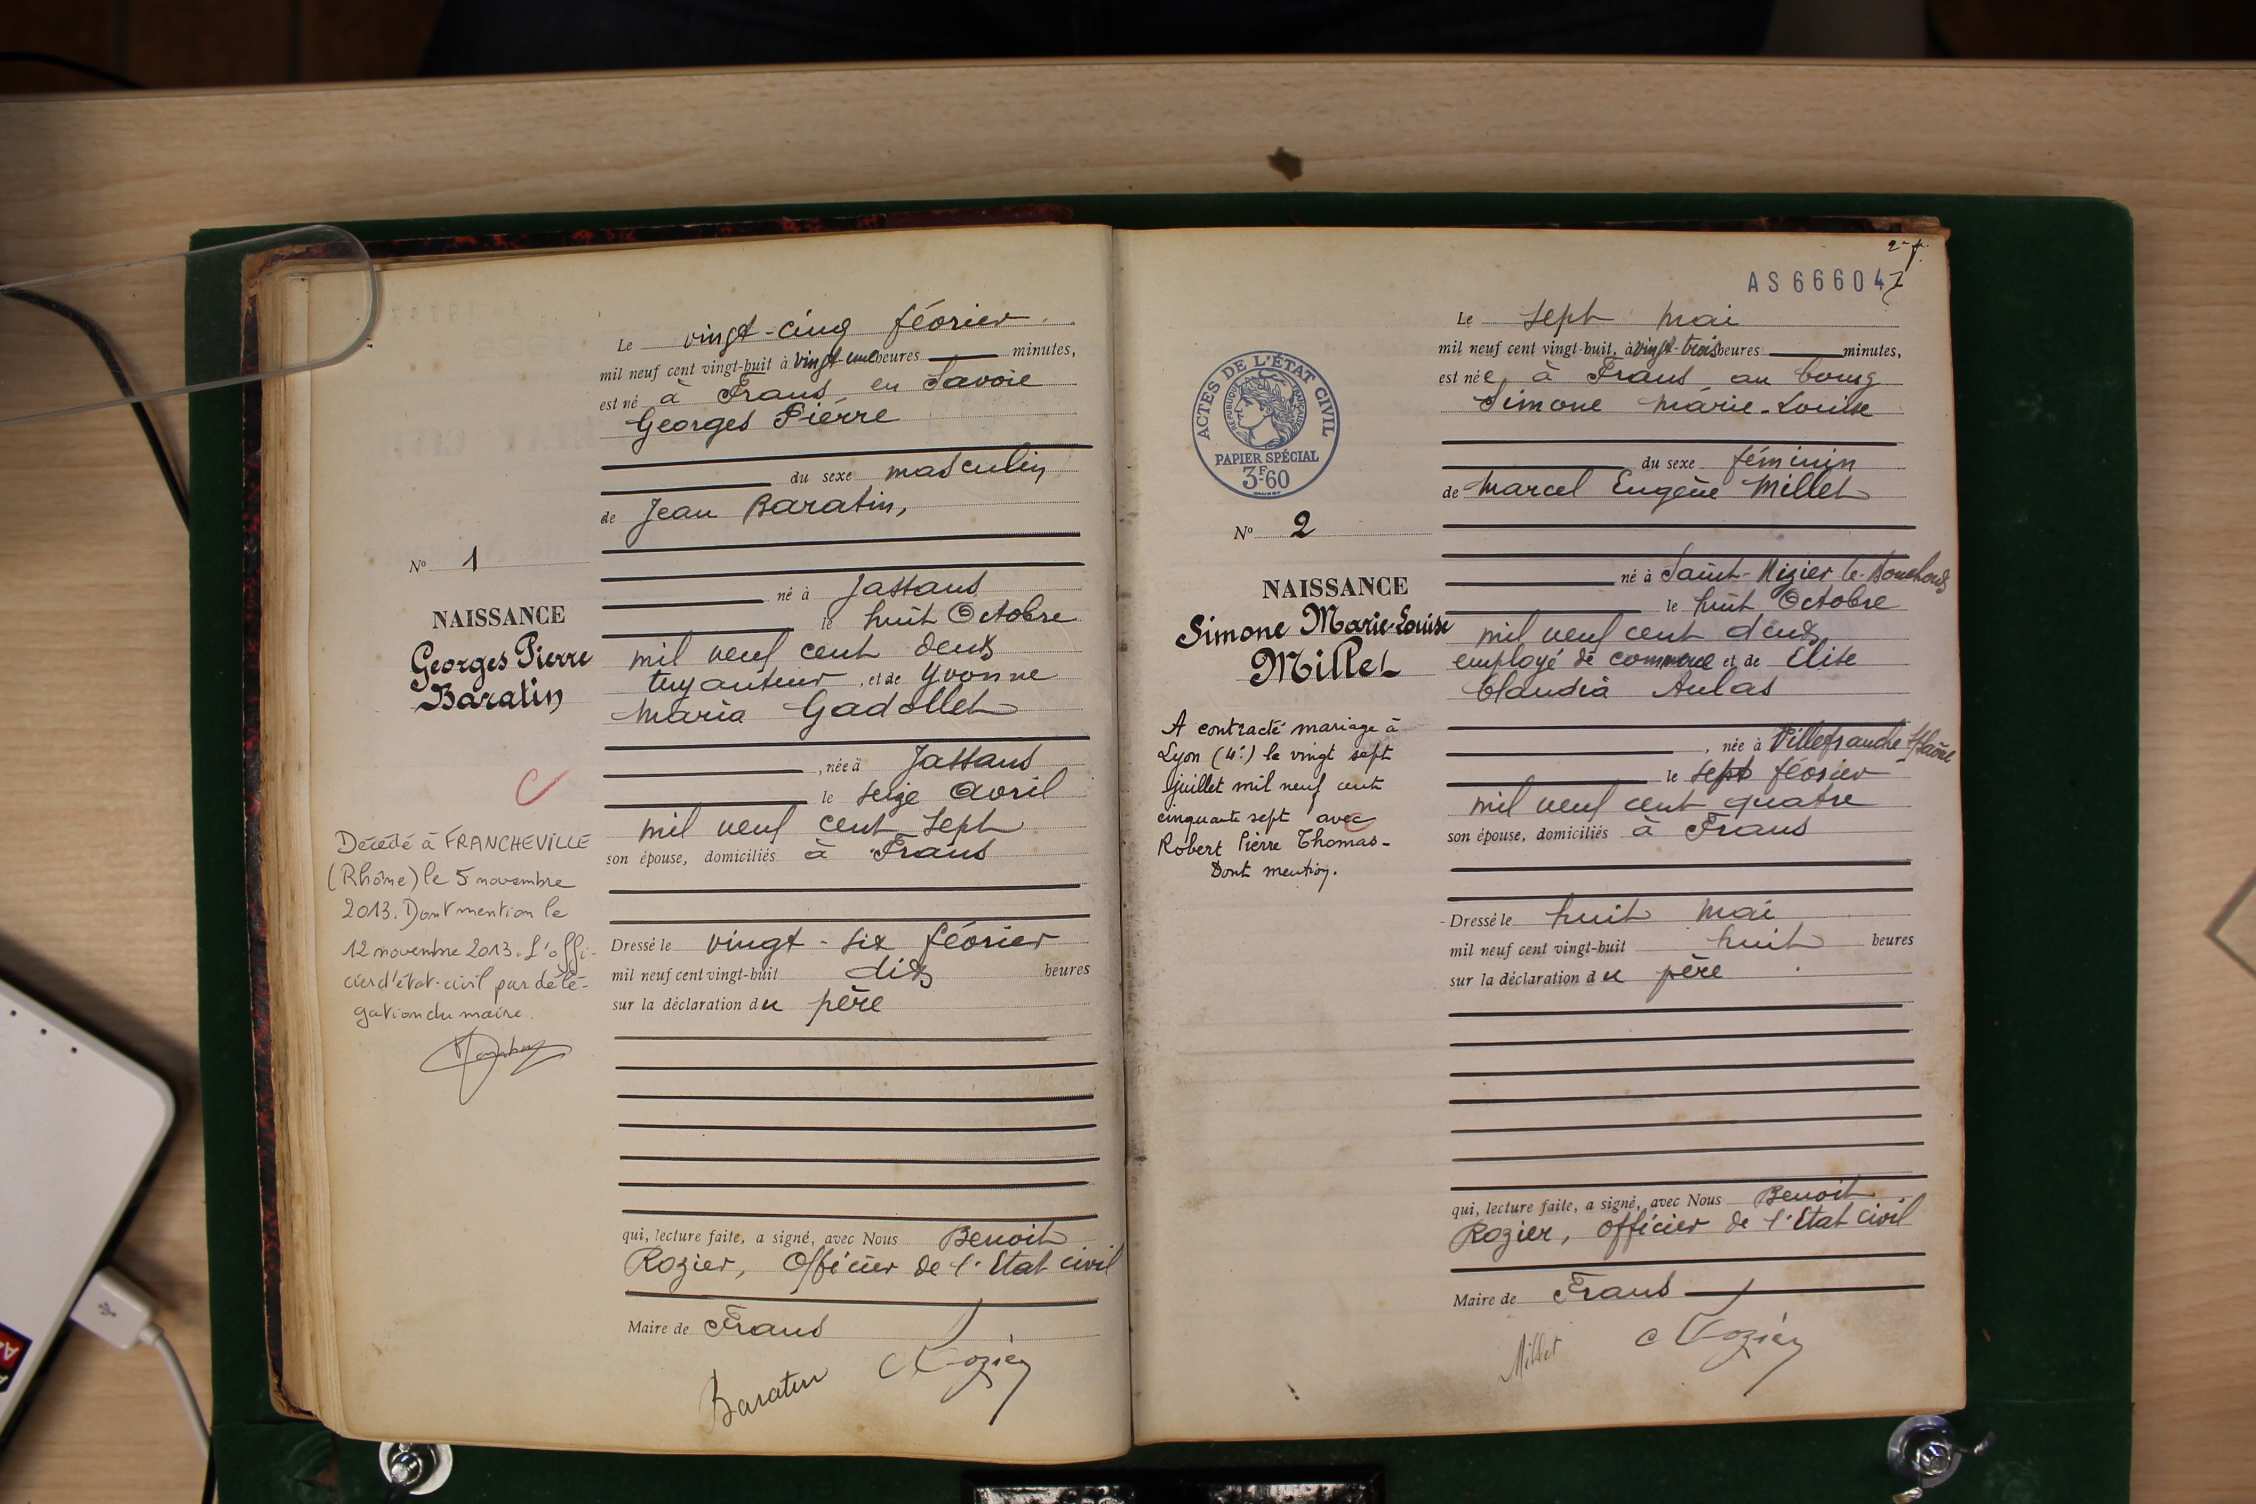 Le vingt-cinq février
mil neuf cent vingt-huit à vingt-une heures minutes,
est né à Frans en Savoie
Georges Pierre
du sexe masculin
de Jean Baratin,
né à Jassans
le huit Octobre
mil neuf cent deux
tuyauteur, et de Yvonne
Maria Gadollet
, née à Jassans
le seize Avril
mil neuf cent sept
son épouse, domiciliés à Frans
Dressé le vingt-six février
mil neuf cent vingt-huit dix heures
sur la déclaration du père
qui, lecture faite, a signé, avec Nous Benoit
Rozier, Officier de l'Etat civil
Maire de Frans
Baratin Rozier
No 1
NAISSANCE
Georges Pierre
Baratin
Décédé à FRANCHEVILLE
(Rhône) le 5 novembre
2013. Dont mention le
12 novembre 2013. L'offi-
cier d'état-civil par délé-
gation du maire.
AS66604
Le sept mai
mil neuf cent vingt-huit, à vingt-trois heures minutes,
est née à Frans au bourg
Simone Marie-Louise
du sexe féminin
de Marcel Eugène Millet
né à Saint-Nizier le-Bouchoux
le huit Octobre
mil neuf cent deux
employé de commerce et de Elise
Claudia Aulas
, née à Villefranche s/Saône
le sept février
mil neuf cent quatre
son épouse, domiciliés à Frans
Dressé le huit mai
mil neuf cent vingt-huit huit heures
sur la déclaration du père
qui, lecture faite, a signé, avec Nous Benoit
Rozier, officier de l'Etat civil
Maire de Frans
Millet Rozier
ACTES DE L'ÉTAT CIVIL
RÉPUBLIQUE FRANÇAISE
PAPIER SPÉCIAL
3F.60
No 2
NAISSANCE
Simone Marie-Louise
Millet
A contracté mariage à
Lyon (4e) le vingt sept
juillet mil neuf cent
cinquante sept avec
Robert Pierre Thomas-
Dont mention.